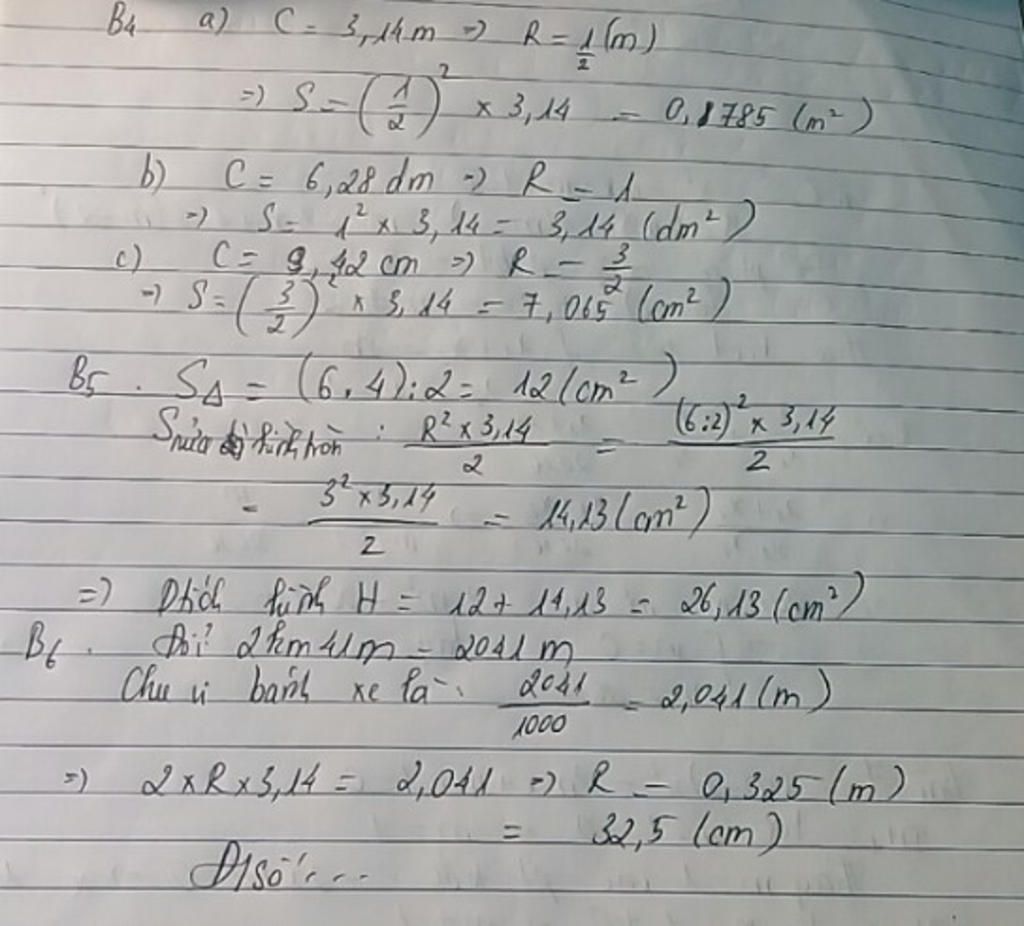 B4 a) C = 3,14m => R = 1/2 (m)
=> S = (1/2)² × 3,14 = 0,1785 (m²)
b) C = 6,28 dm => R = 1
=> S = 1² × 3,14 = 3,14 (dm²)
c) C = 9,42 cm => R = 3/2
=> S = (3/2)² × 3,14 = 7,065 (cm²)
B5. S△ = (6.4):2 = 12 (cm²)
Snửa hình tròn : R² × 3,14 / 2 = (6:2)² × 3,14 / 2
= 3² × 3,14 / 2 = 14,13 (cm²)
=> Dtích hình H = 12 + 14,13 = 26,13 (cm²)
B6. Đổi 2km41m = 2041 m
Chu vi bánh xe là: 2041/1000 = 2,041 (m)
=> 2 × R × 3,14 = 2,041 => R = 0,325 (m)
= 32,5 (cm)
Đ/số: ...